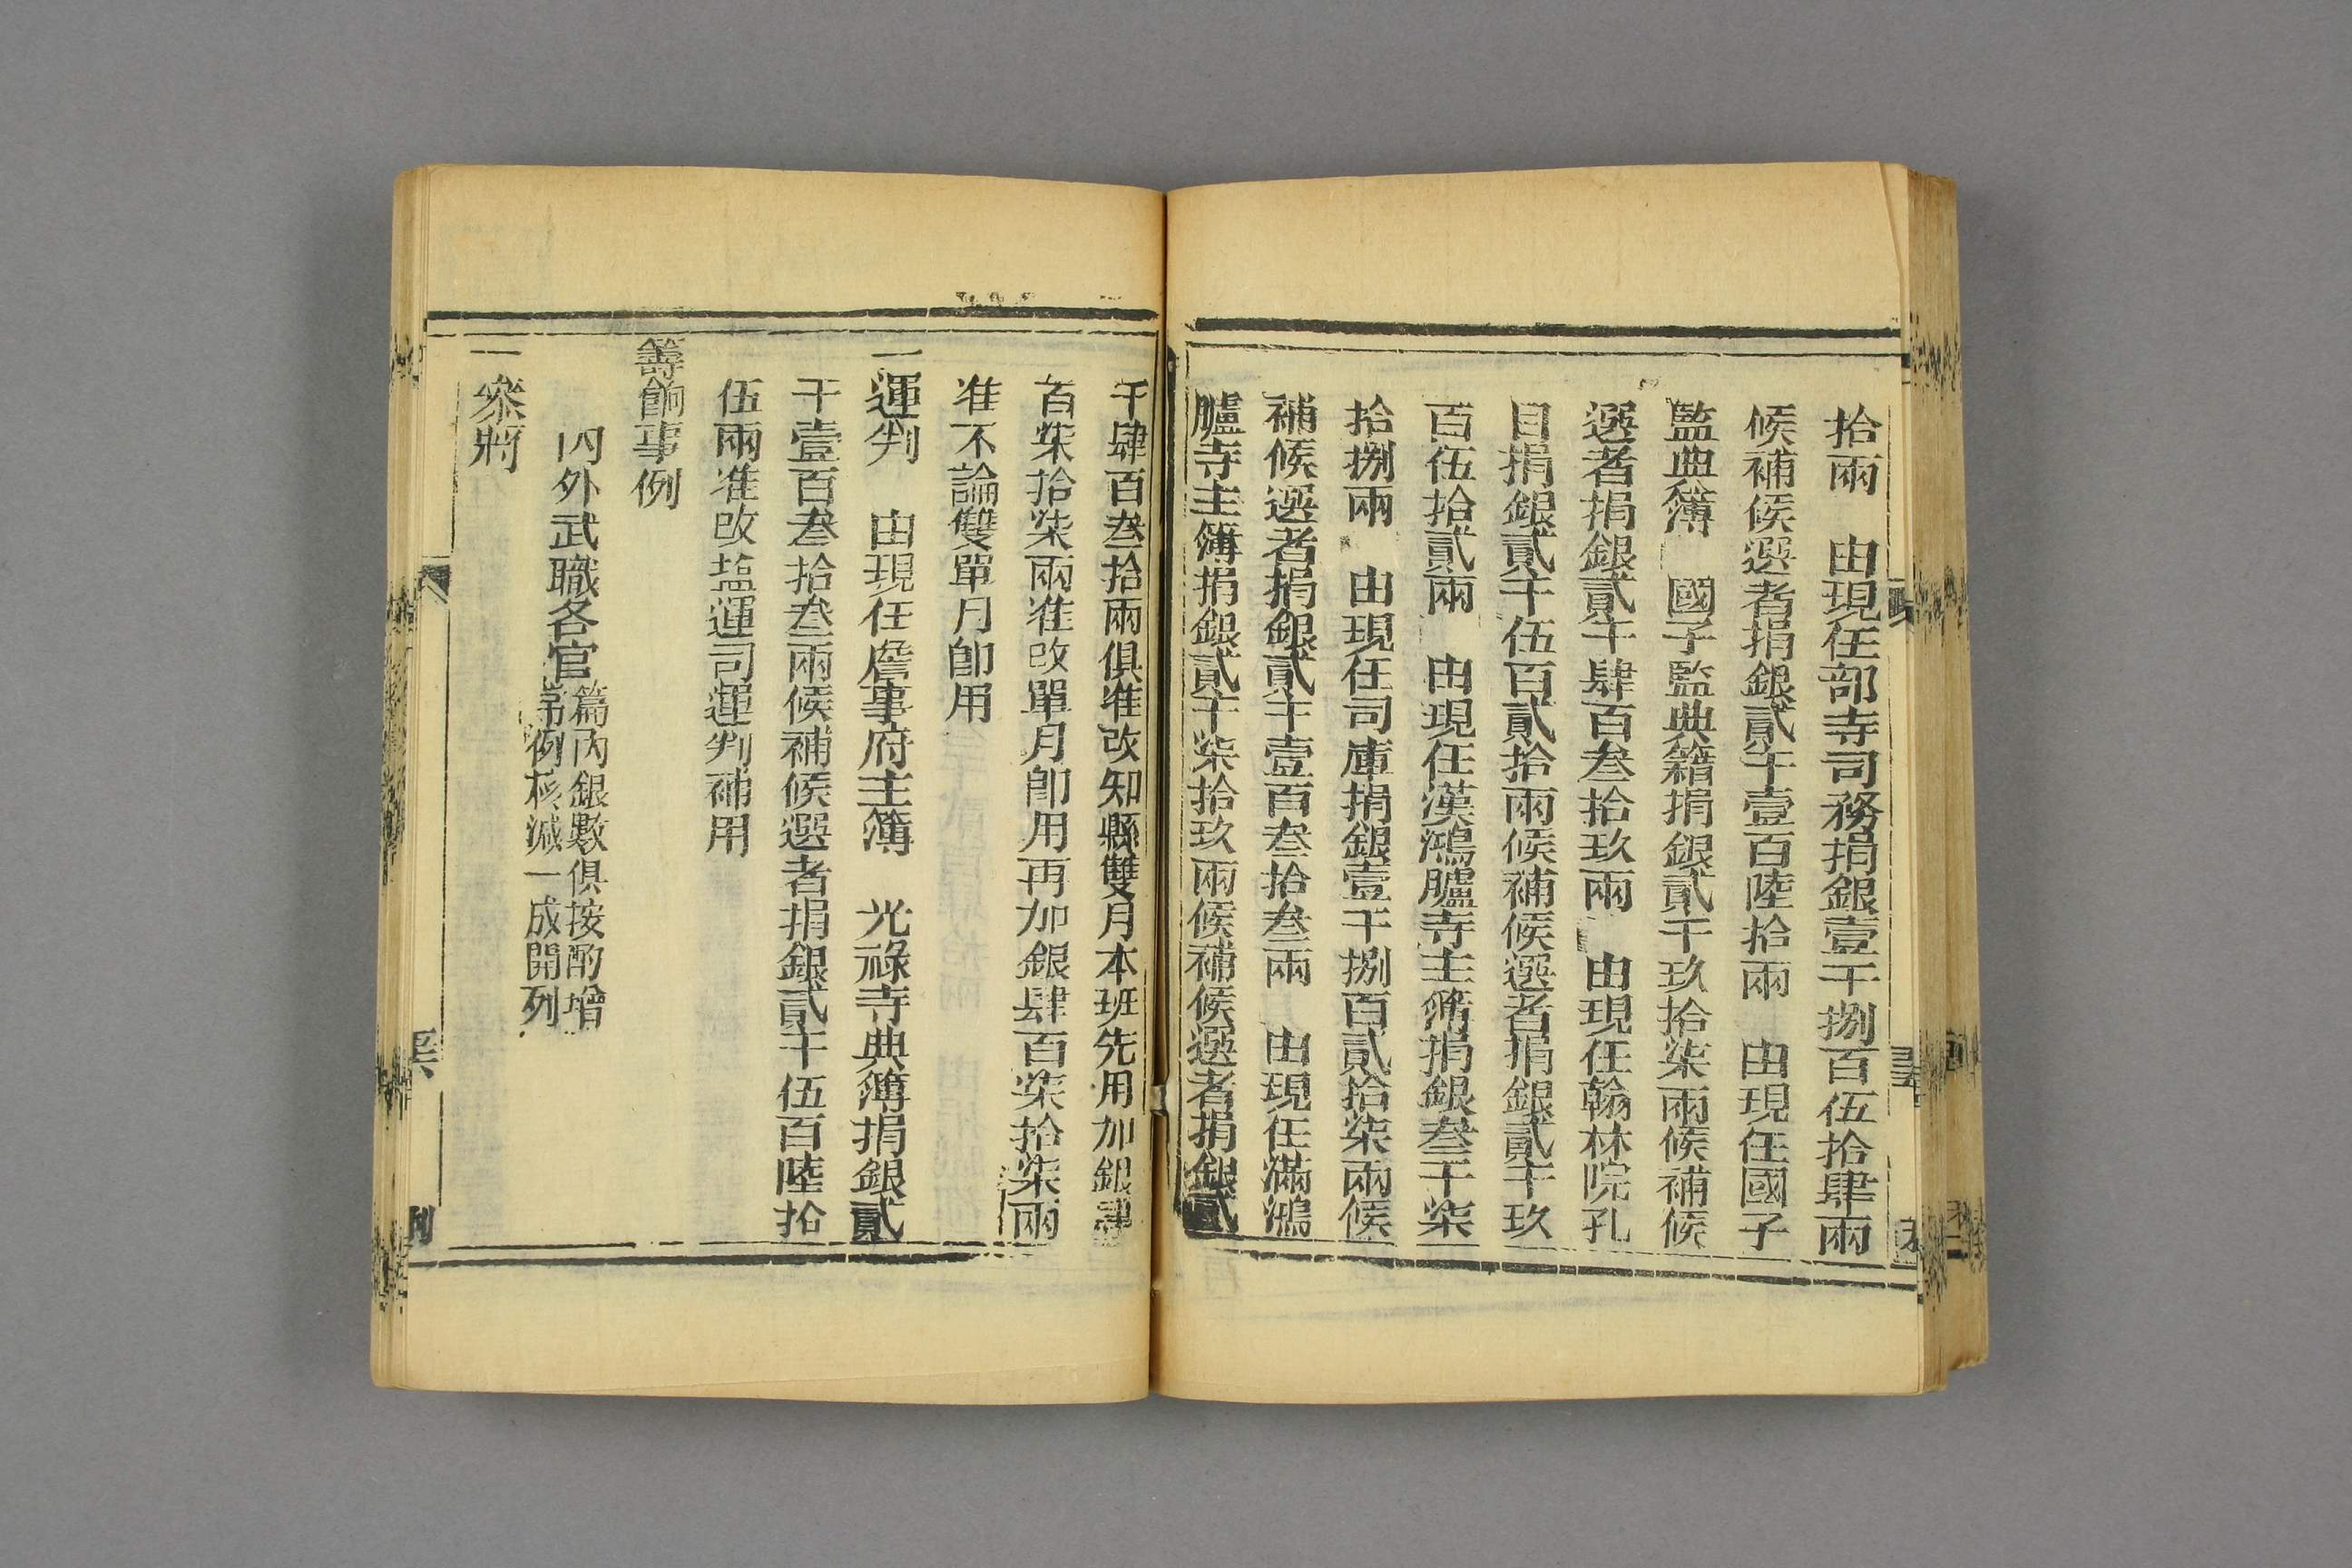 拾兩　由現任部寺司務捐銀壹千捌百伍拾肆兩
候補候選者捐銀貳千壹百陸拾兩　由現任國子
監典簿　國子監典籍捐銀貳千玖拾柒兩候補候
選者捐銀貳千肆百叁拾玖兩　由現任翰林院孔
目捐銀貳千伍百貳拾兩候補候選者捐銀貳千玖
百伍拾貳兩　由現任漢鴻臚寺主簿捐銀叁千柒
拾捌兩　由現任司庫捐銀壹千捌百貳拾柒兩候
補候選者捐銀貳千壹百叁拾叁兩　由現任滿鴻
臚寺主簿捐銀貳千柒拾玖兩候補候選者捐銀貳
千肆百叁拾兩俱准改知縣雙月本班先用加銀肆
百柒拾柒兩准改單月卽用再加銀肆百柒拾柒兩
准不論雙單月卽用
一運判　由現任詹事府主簿　光祿寺典簿捐銀貳
千壹百叁拾叁兩候補候選者捐銀貳千伍百陸拾
伍兩准改塩運司運判補用
籌餉事例
內外武職各官
篇內銀數俱按酌增
常例核減一成開列
一叅將